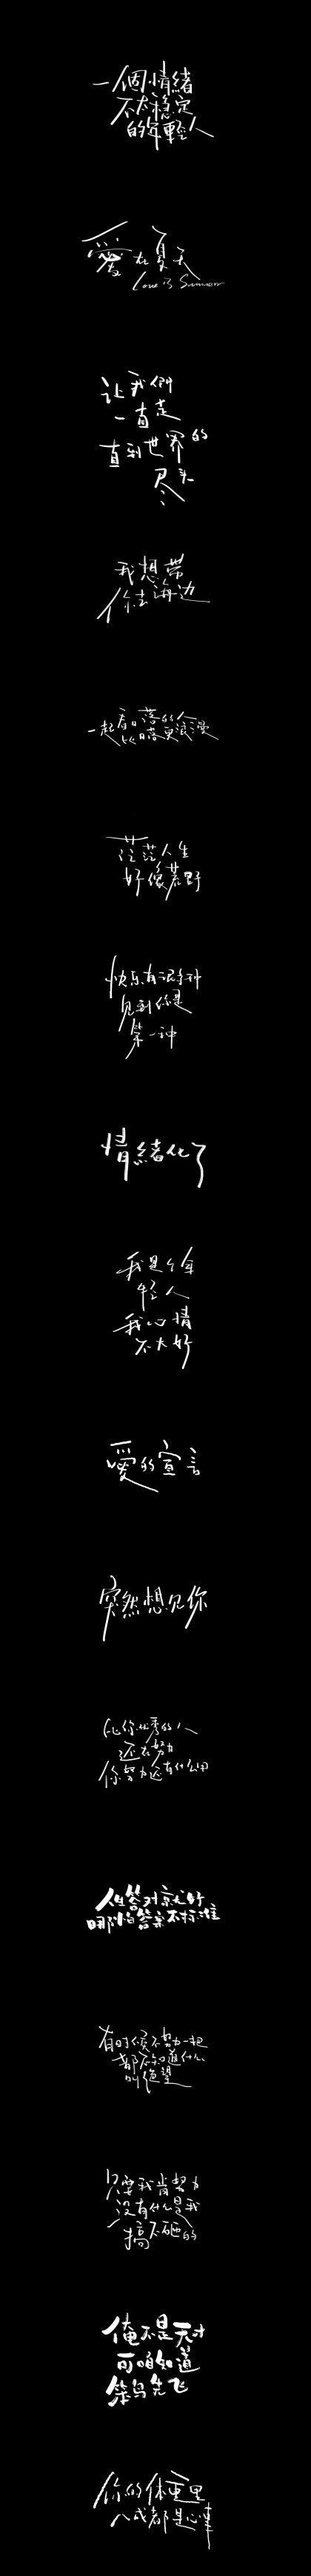 一個情緒
不太穩定
的年輕人
愛在夏天
Love is Summer
让我們
一直走
直到世界的
尽头
我想带
你去海边
一起看日落的人
比日落更浪漫
茫茫人生
好像荒野
快乐有很多种
见到你是
第一种
情緒化了
我是个年
轻人
我心情
不太好
愛的宣言
突然想见你
比你优秀的人
还在努力
你努力还有什么用
但答对就好
哪怕答案不标准
有时候不努力一把
都不知道什么
叫绝望
只要我肯努力
没有什么是我
搞不砸的
俺不是天才
可咱知道
笨鸟先飞
你的体重里
八成都是心事